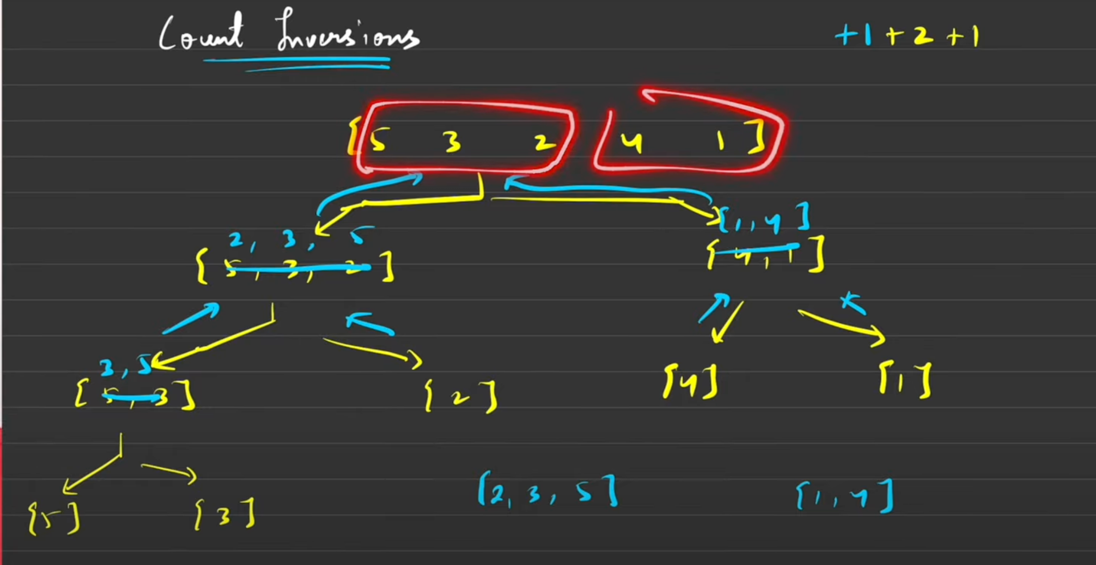 Count Inversions
+1 + 2 + 1
[5 3 2 4 1]
2, 3, 5
[5, 3, 2]
[1, 4]
[4, 1]
3, 5
[5, 3]
[2]
[4]
[1]
[5]
[3]
[2, 3, 5]
[1, 4]